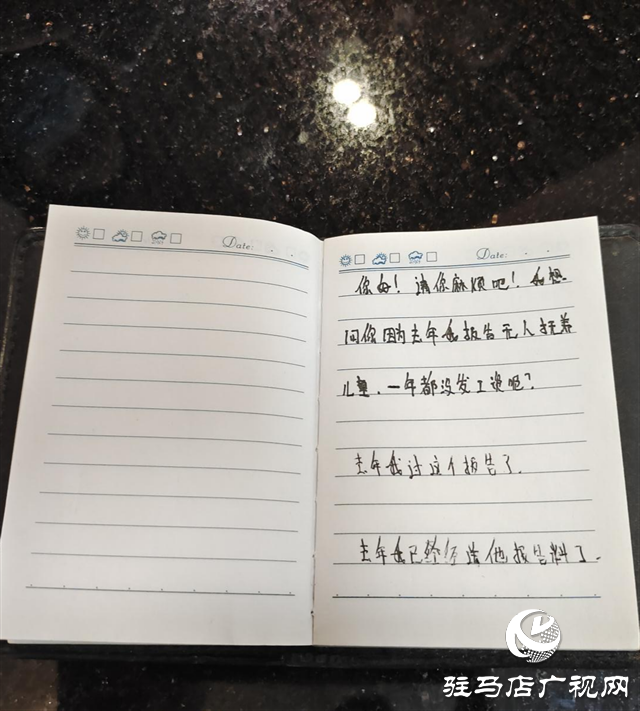 Date:
Date:
你好！请你麻烦吧！我想
问你因为去年我报告无人抚养
儿童、一年都没发工资呢？
去年我过这个报告了.
去年我已经经送他报告料了.
驻马店广视网